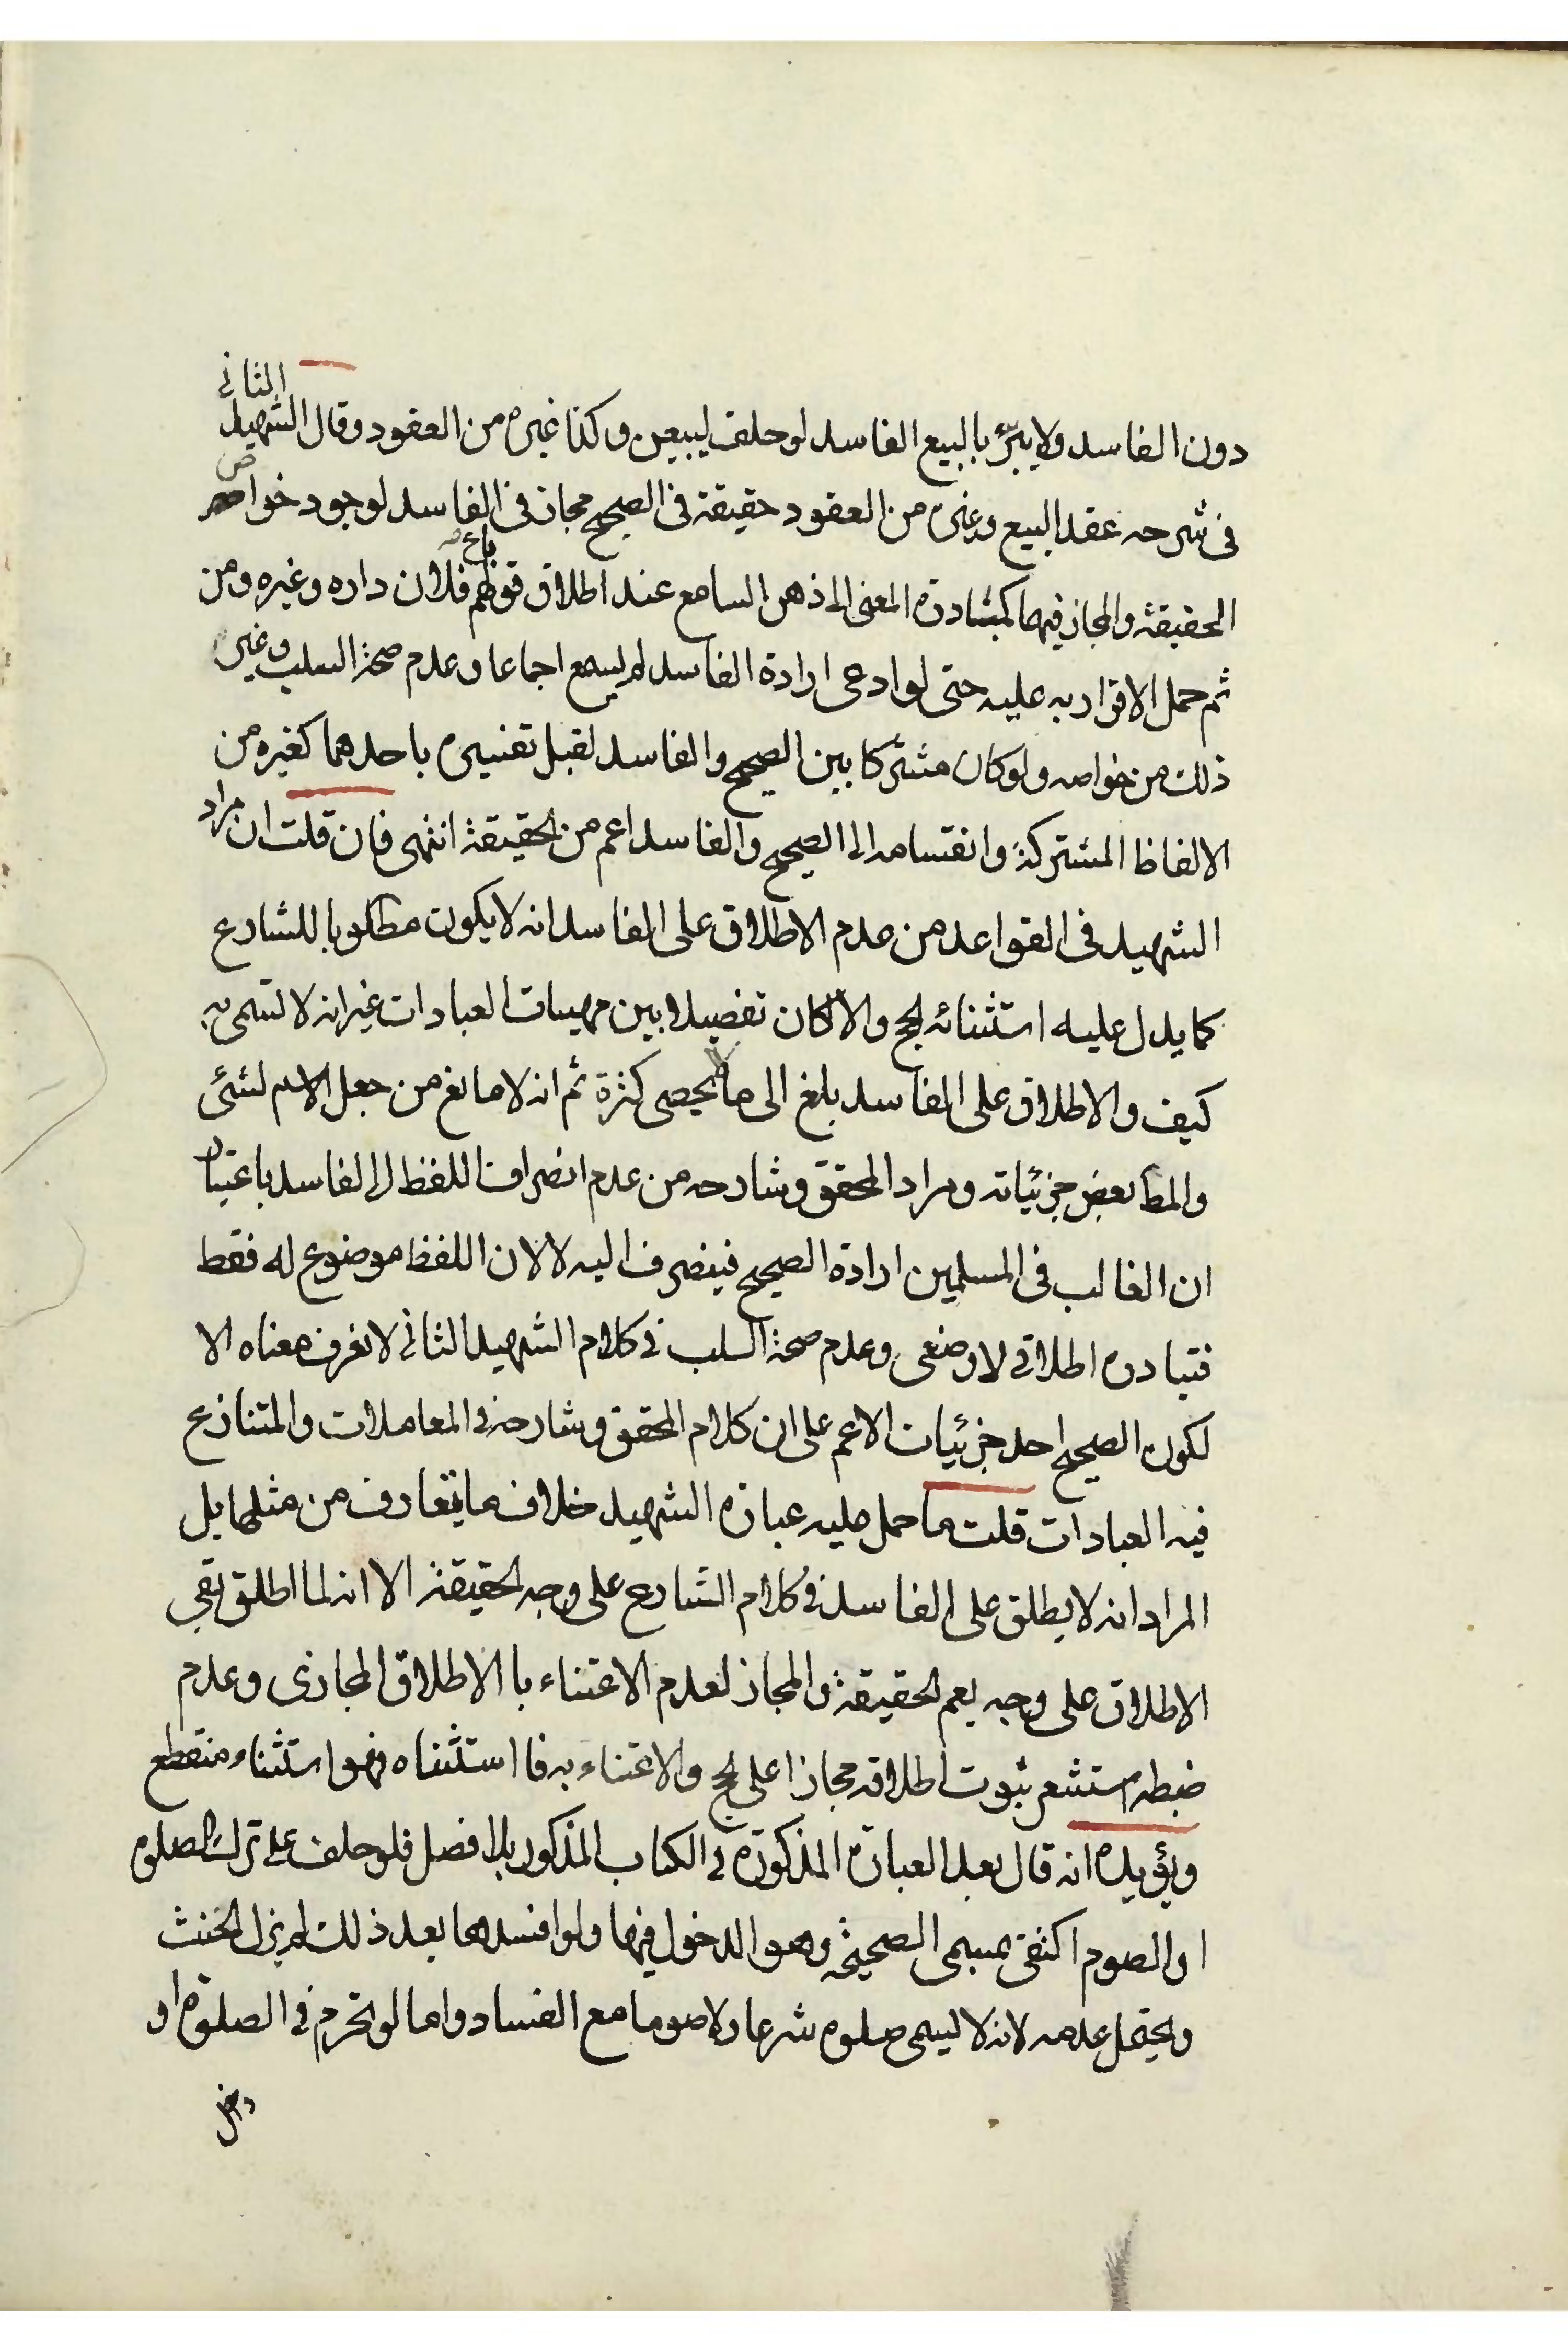 دون الفاسد ولا يبرّ بالبيع الفاسد لو حلف ليبيعن وكذا غيره من العقود وقال الشهيد الثاني
في شرحه عقد البيع وغيره من العقود حقيقة في الصحيح مجاز في الفاسد لوجود خواص
الحقيقة والمجاز فيهما كمبادرة المعنى الى ذهن السامع عند اطلاق قولهم باع فلان داره وغيره ومن
ثم حمل الاقرار به عليه حتى لو ادعى ارادة الفاسد لم يسمع اجماعا وعدم صحة السلب وغير
ذلك من خواصه ولو كان مشتركا بين الصحيح والفاسد لقبل تفسيره باحدهما كغيره من
الالفاظ المشتركة وانقسامه الى الصحيح والفاسد اعم من الحقيقة انتهى فان قلت ان مراد
الشهيد في القواعد من عدم الاطلاق على الفاسد انه لا يكون مطلوبا للشارع
كما يدل عليه استثنائه الحج والا لكان تفصيلا بين مهيات العبادات غير انه لا تسمى به
كيف والاطلاق على الفاسد بلغ الى ما لا يحصى كثرة ثم انه لا مانع من جعل الاسم لشئ
والمط بعض جزئياته ومراد المحقق وشارحه من عدم انصراف اللفظ الى الفاسد باعتبار
ان الغالب في المسلمين ارادة الصحيح فينصرف اليه لا لان اللفظ موضوع له فقط
فتبادره اطلاقي لا وضعى وعدم صحة السلب في كلام الشهيد الثاني لا نعرف معناه الا
لكون الصحيح احد جزئيات الاعم على ان كلام المحقق وشارحه في المعاملات والمتنازع
فيه العبادات قلت ما حمل عليه عبارة الشهيد خلاف ما يتعارف من مثلها بل
المراد انه لا يطلق على الفاسد في كلام الشارع على وجه الحقيقة الا انه لما اطلق بقي
الاطلاق على وجه يعم الحقيقة والمجاز لعدم الاعتناء با الاطلاق المجازى وعدم
ضبطه استشعر ثبوت اطلاقه مجازا على الحج والاعتناء به فا استثناه فهو استثناء منقطع
ويؤيده انه قال بعد العبارة المذكورة في الكتاب المذكور بلا فصل فلو حلف على ترك الصلوة
او الصوم اكتفى بمسمى الصحيحة وهو الدخول فيها ولو افسدها بعد ذلك لم يزل الحنث
ويحتمل عدمه لانه لا يسمى صلوة شرعا ولا صوما مع الفساد واما لو تحرم في الصلوة او
دخل